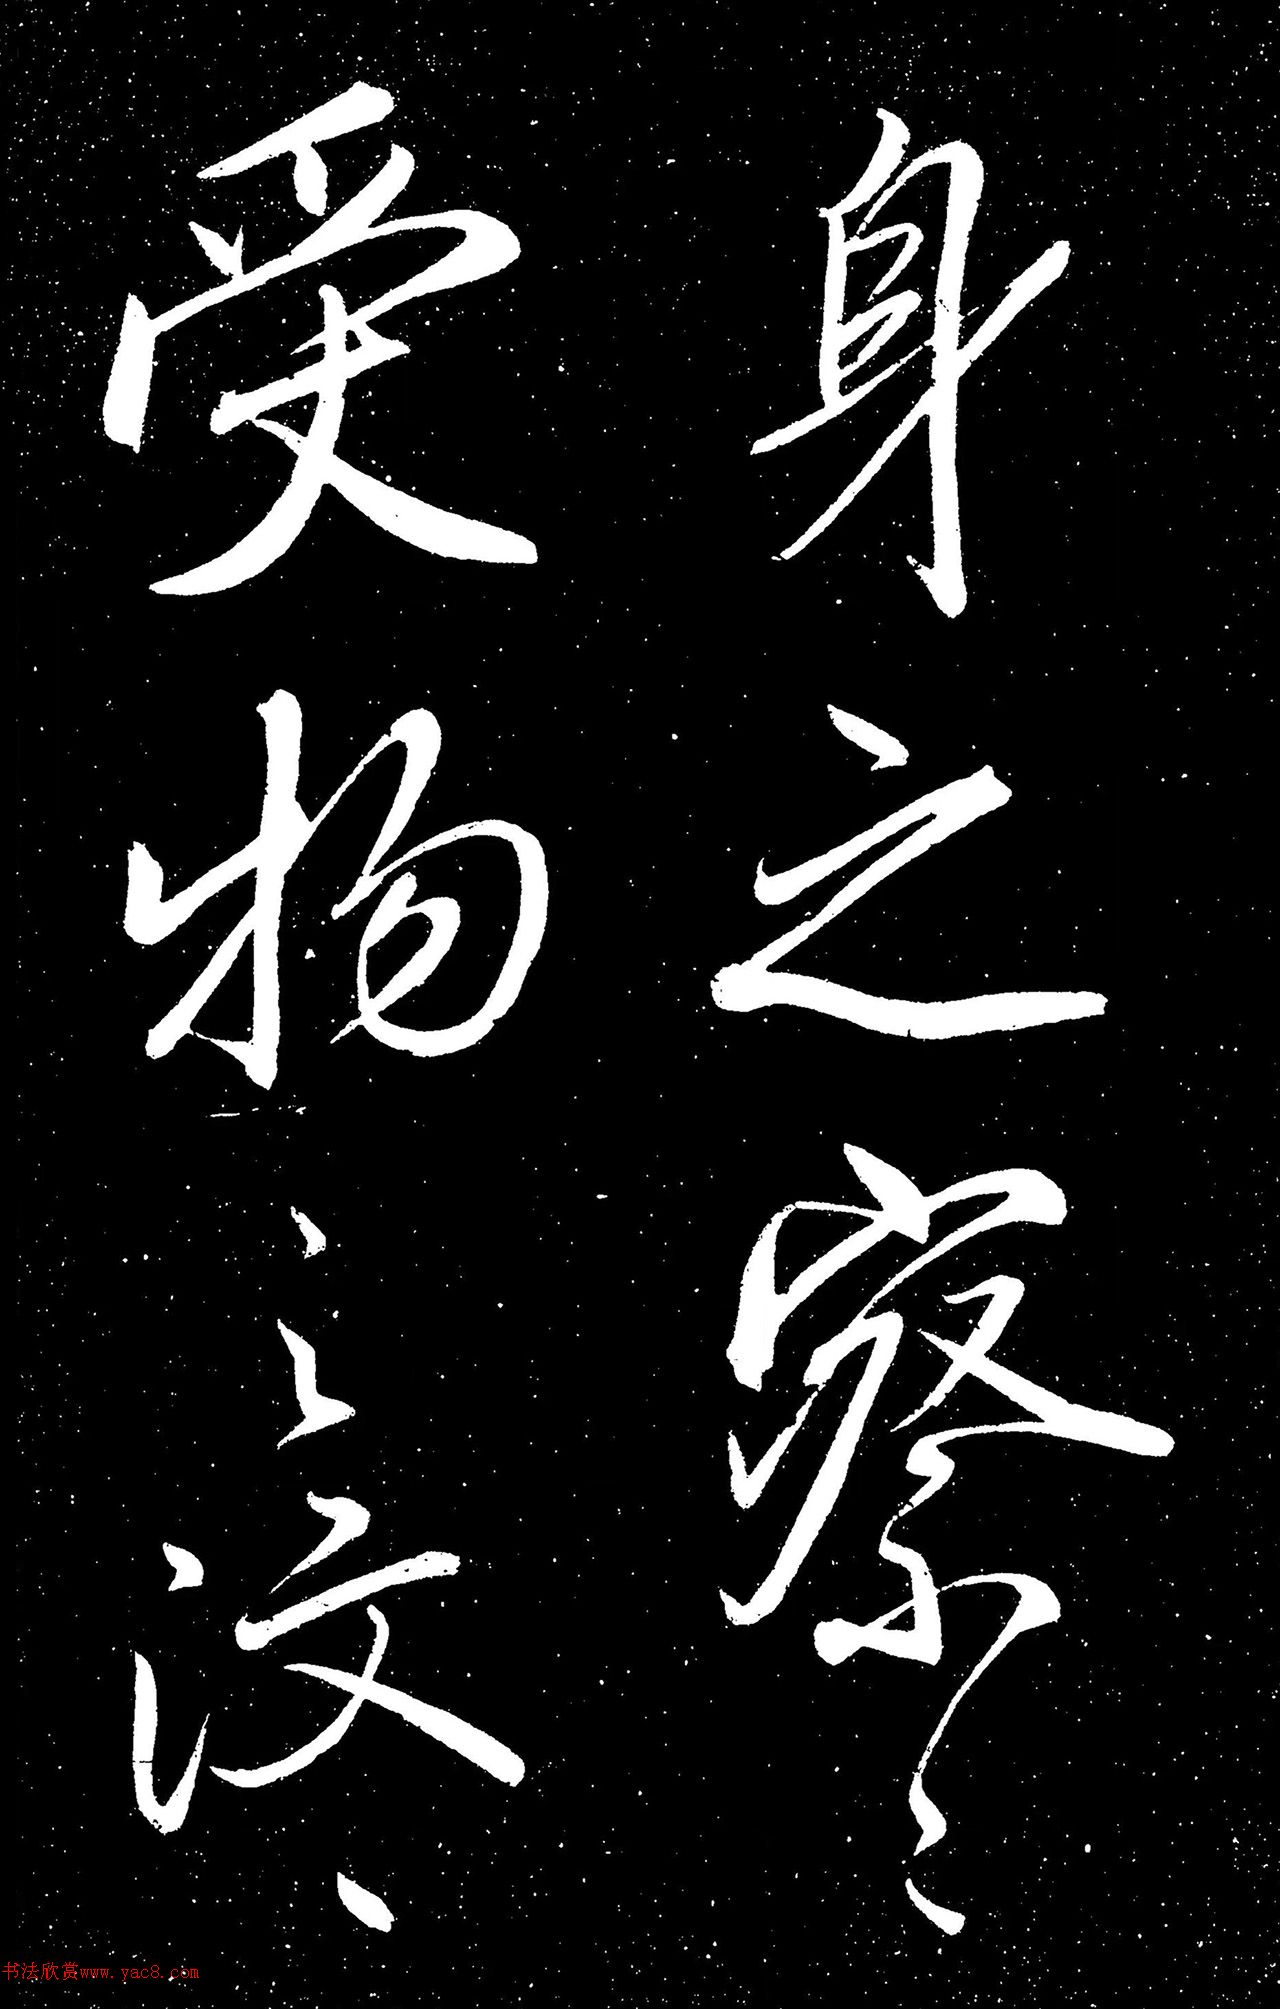 身之察々
受物之汶々
书法欣赏www.yac8.com